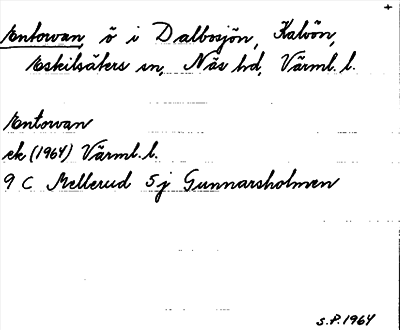 +
Entorvan, ö i Dalbosjön, Kalvön,
Eskilsäters sn, Näs hd, Värml. l.
Entorvan
ek (1964) Värml. l.
9 C Mellerud 5 j Gunnarsholmen
S.P. 1964